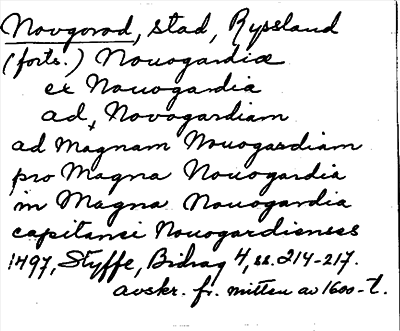 Novgorod, stad, Ryssland
(forts.) Nouogardiæ
ex Nouogardia
ad, Novogardiam
ad Magnam Nouogardiam
pro Magna Nouogardia
in Magna Nouogardia
capitanei Nouogardienses
1497, Styffe, Bidrag 4, ss. 214-217.
avskr. fr. mitten av 1600-t.